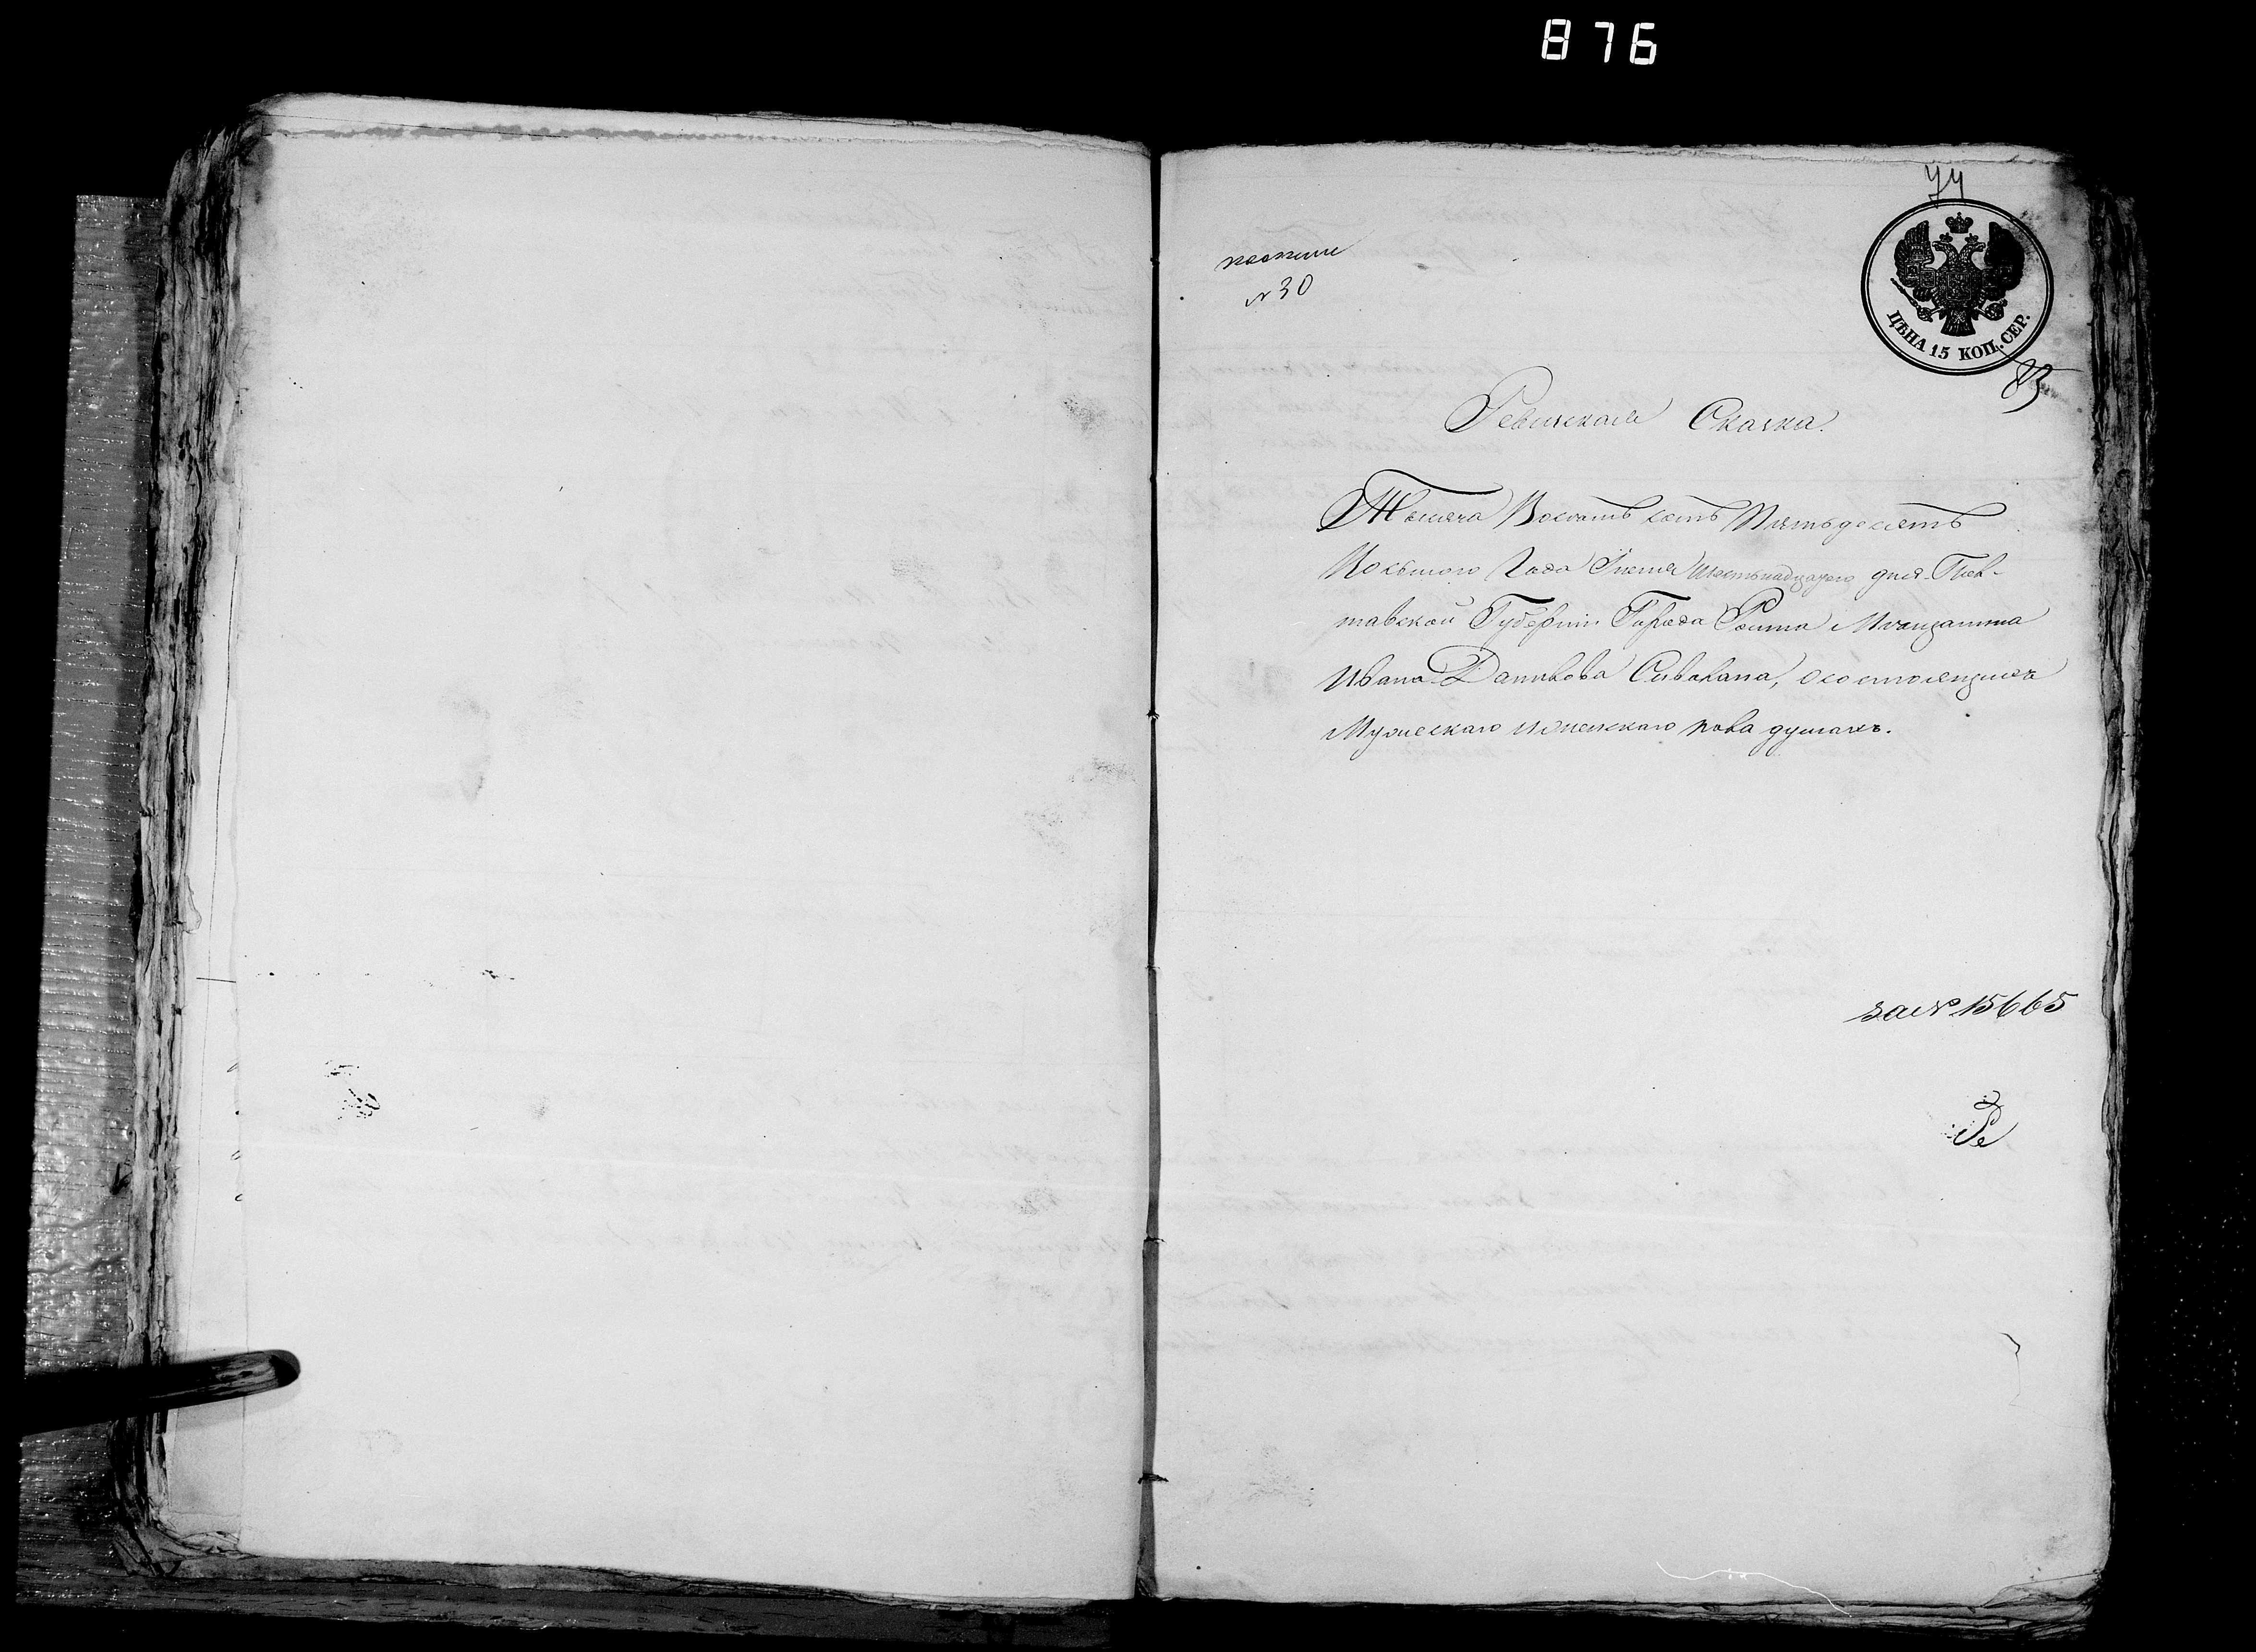 876
74
ЦѢНА 15 КОП. СЕР.
83
по описи
№ 30
Ревизская Сказка.
Тысяча Восемь сотъ Пятьдесятъ
Восьмого Года Июня Шестьнадцатого дня. Пол-
тавской Губернии Города Ромна Мѣщанина
Ивана Данилова Сивакана, о состоящихъ
Мужескаго и женскаго пола душахъ.
за № 15665
Ре